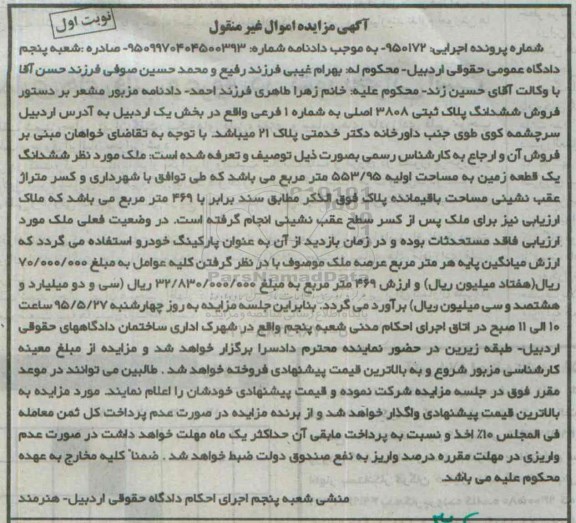 نوبت اول
آگهی مزایده اموال غیر منقول
شماره پرونده اجرایی: ۹۵۰۱۷۲- به موجب دادنامه شماره: ۹۵۰۹۹۷۰۴۰۴۵۰۰۳۹۳- صادره :شعبه پنجم
دادگاه عمومی حقوقی اردبیل- محکوم له: بهرام غیبی فرزند رفیع و محمد حسین صوفی فرزند حسن آقا
با وکالت آقای حسین زند- محکوم علیه: خانم زهرا طاهری فرزند احمد- دادنامه مزبور مشعر بر دستور
فروش ششدانگ پلاک ثبتی ۳۸۰۸ اصلی به شماره ۱ فرعی واقع در بخش یک اردبیل به آدرس اردبیل
سرچشمه کوی طوی جنب داورخانه دکتر خدمتی پلاک ۲۱ میباشد. با توجه به تقاضای خواهان مبنی بر
فروش آن و ارجاع به کارشناس رسمی بصورت ذیل توصیف و تعرفه شده است: ملک مورد نظر ششدانگ
یک قطعه زمین به مساحت اولیه ۵۵۳/۹۵ متر مربع می باشد که طی توافق با شهرداری و کسر متراژ
عقب نشینی مساحت باقیمانده پلاک فوق الذکر مطابق سند برابر با ۴۶۹ متر مربع می باشد که ملاک
ارزیابی نیز برای ملک پس از کسر سطح عقب نشینی انجام گرفته است. در وضعیت فعلی ملک مورد
ارزیابی فاقد مستحدثات بوده و در زمان بازدید از آن به عنوان پارکینگ خودرو استفاده می گردد که
ارزش میانگین پایه هر متر مربع عرصه ملک موصوف با در نظر گرفتن کلیه عوامل به مبلغ ۷۰/۰۰۰/۰۰۰
ریال(هفتاد میلیون ریال) و ارزش ۴۶۹ متر مربع به مبلغ ۳۲/۸۳۰/۰۰۰/۰۰۰ ریال (سی و دو میلیارد و
هشتصد و سی میلیون ریال) برآورد می گردد. بنابراین جلسه مزایده به روز چهارشنبه ۹۵/۵/۲۷ ساعت
۱۰ الی ۱۱ صبح در اتاق اجرای احکام مدنی شعبه پنجم واقع در شهرک اداری ساختمان دادگاههای حقوقی
اردبیل- طبقه زیرین در حضور نماینده محترم دادسرا برگزار خواهد شد و مزایده از مبلغ معینه
کارشناسی مزبور شروع و به بالاترین قیمت پیشنهادی فروخته خواهد شد . طالبین می توانند در موعد
مقرر فوق در جلسه مزایده شرکت نموده و قیمت پیشنهادی خودشان را اعلام نمایند. مورد مزایده به
بالاترین قیمت پیشنهادی واگذار خواهد شد و از برنده مزایده در صورت عدم پرداخت کل ثمن معامله
فی المجلس ۱۰٪ اخذ و نسبت به پرداخت مابقی آن حداکثر یک ماه مهلت خواهد داشت در صورت عدم
واریزی در مهلت مقرره درصد واریز به نفع صندوق دولت ضبط خواهد شد . ضمناً کلیه مخارج به عهده
محکوم علیه می باشد.
منشی شعبه پنجم اجرای احکام دادگاه حقوقی اردبیل- هنرمند
ParsNamadData